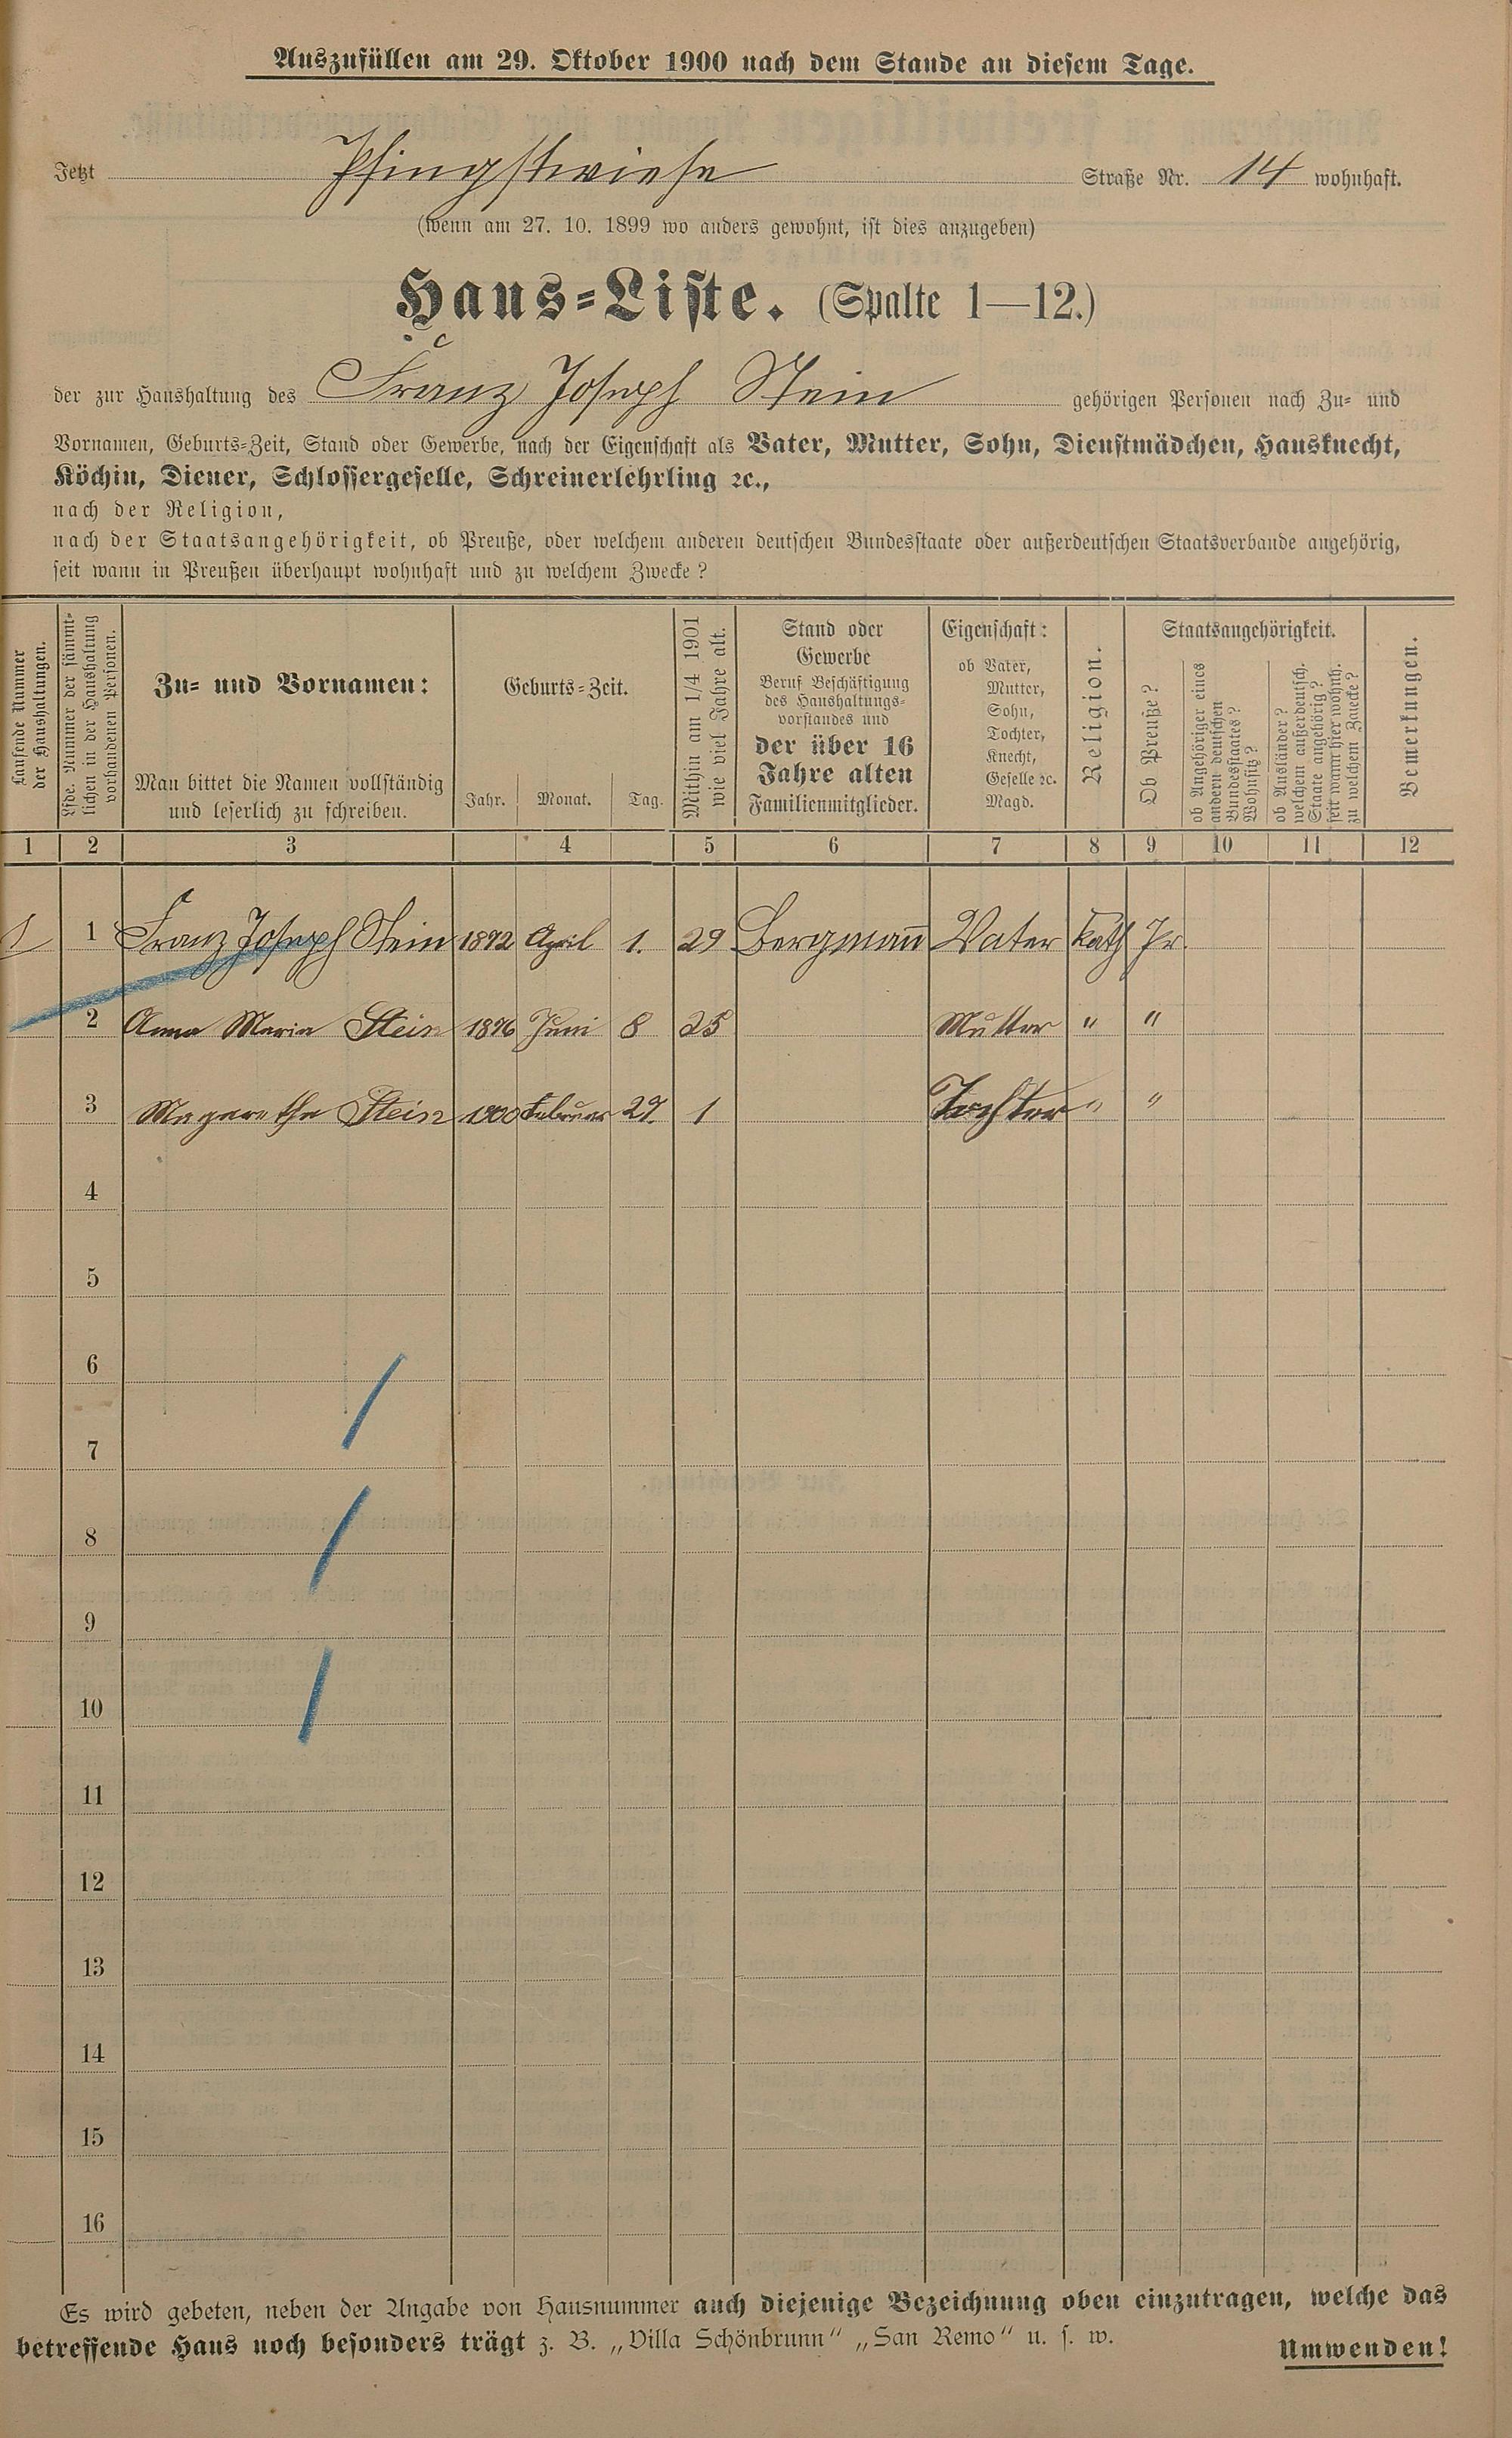 Auszufüllen am 29. Oktober 1900 nach dem Stande an diesem Tage.
Jetzt Pfingstwiese Straße Nr. 14 wohnhaft.
(wenn am 27. 10. 1899 wo anders gewohnt, ist dies anzugeben)
Haus-Liste. (Spalte 1—12.)
der zur Haushaltung des Franz Joseph Stein gehörigen Personen nach Zu- und
Vornamen, Geburts-Zeit, Stand oder Gewerbe, nach der Eigenschaft als Vater, Mutter, Sohn, Dienstmädchen, Hausknecht,
Köchin, Diener, Schlossergeselle, Schreinerlehrling ꝛc.,
nach der Religion,
nach der Staatsangehörigkeit, ob Preuße, oder welchem anderen deutschen Bundesstaate oder außerdeutschen Staatsverbande angehörig,
seit wann in Preußen überhaupt wohnhaft und zu welchem Zwecke?
Laufende Nummer
der Haushaltungen.
Lfde. Nummer der sämmt-
lichen in der Haushaltung
vorhandenen Personen.
Zu- und Vornamen:
Man bittet die Namen vollständig
und leserlich zu schreiben.
Geburts-Zeit.
Jahr. Monat. Tag.
Mithin am 1/4 1901
wie viel Jahre alt.
Stand oder
Gewerbe
Beruf Beschäftigung
des Haushaltungs-
vorstandes und
der über 16
Jahre alten
Familienmitglieder.
Eigenschaft:
ob Vater,
Mutter,
Sohn,
Tochter,
Knecht,
Geselle ꝛc.
Magd.
Religion.
Staatsangehörigkeit.
Ob Preuße?
ob Angehöriger eines
andern deutschen
Bundesstaates?
Wohnsitz?
ob Ausländer?
welchem außerdeutsch.
Staate angehörig?
seit wann hier wohnh.
zu welchem Zwecke?
Bemerkungen.
1 2 3 4 5 6 7 8 9 10 11 12
1 1 Franz Joseph Stein 1872 April 1. 29 Bergmann Vater Kath Pr.
2 Anna Maria Stein 1876 Juni 8 25 Mutter " "
3 Magarethe Stein 1900 Februar 27. 1 Tochter " "
4
5
6
7
8
9
10
11
12
13
14
15
16
Es wird gebeten, neben der Angabe von Hausnummer auch diejenige Bezeichnung oben einzutragen, welche das
betreffende Haus noch besonders trägt z. B. „Villa Schönbrunn“ „San Remo“ u. s. w.
Umwenden!